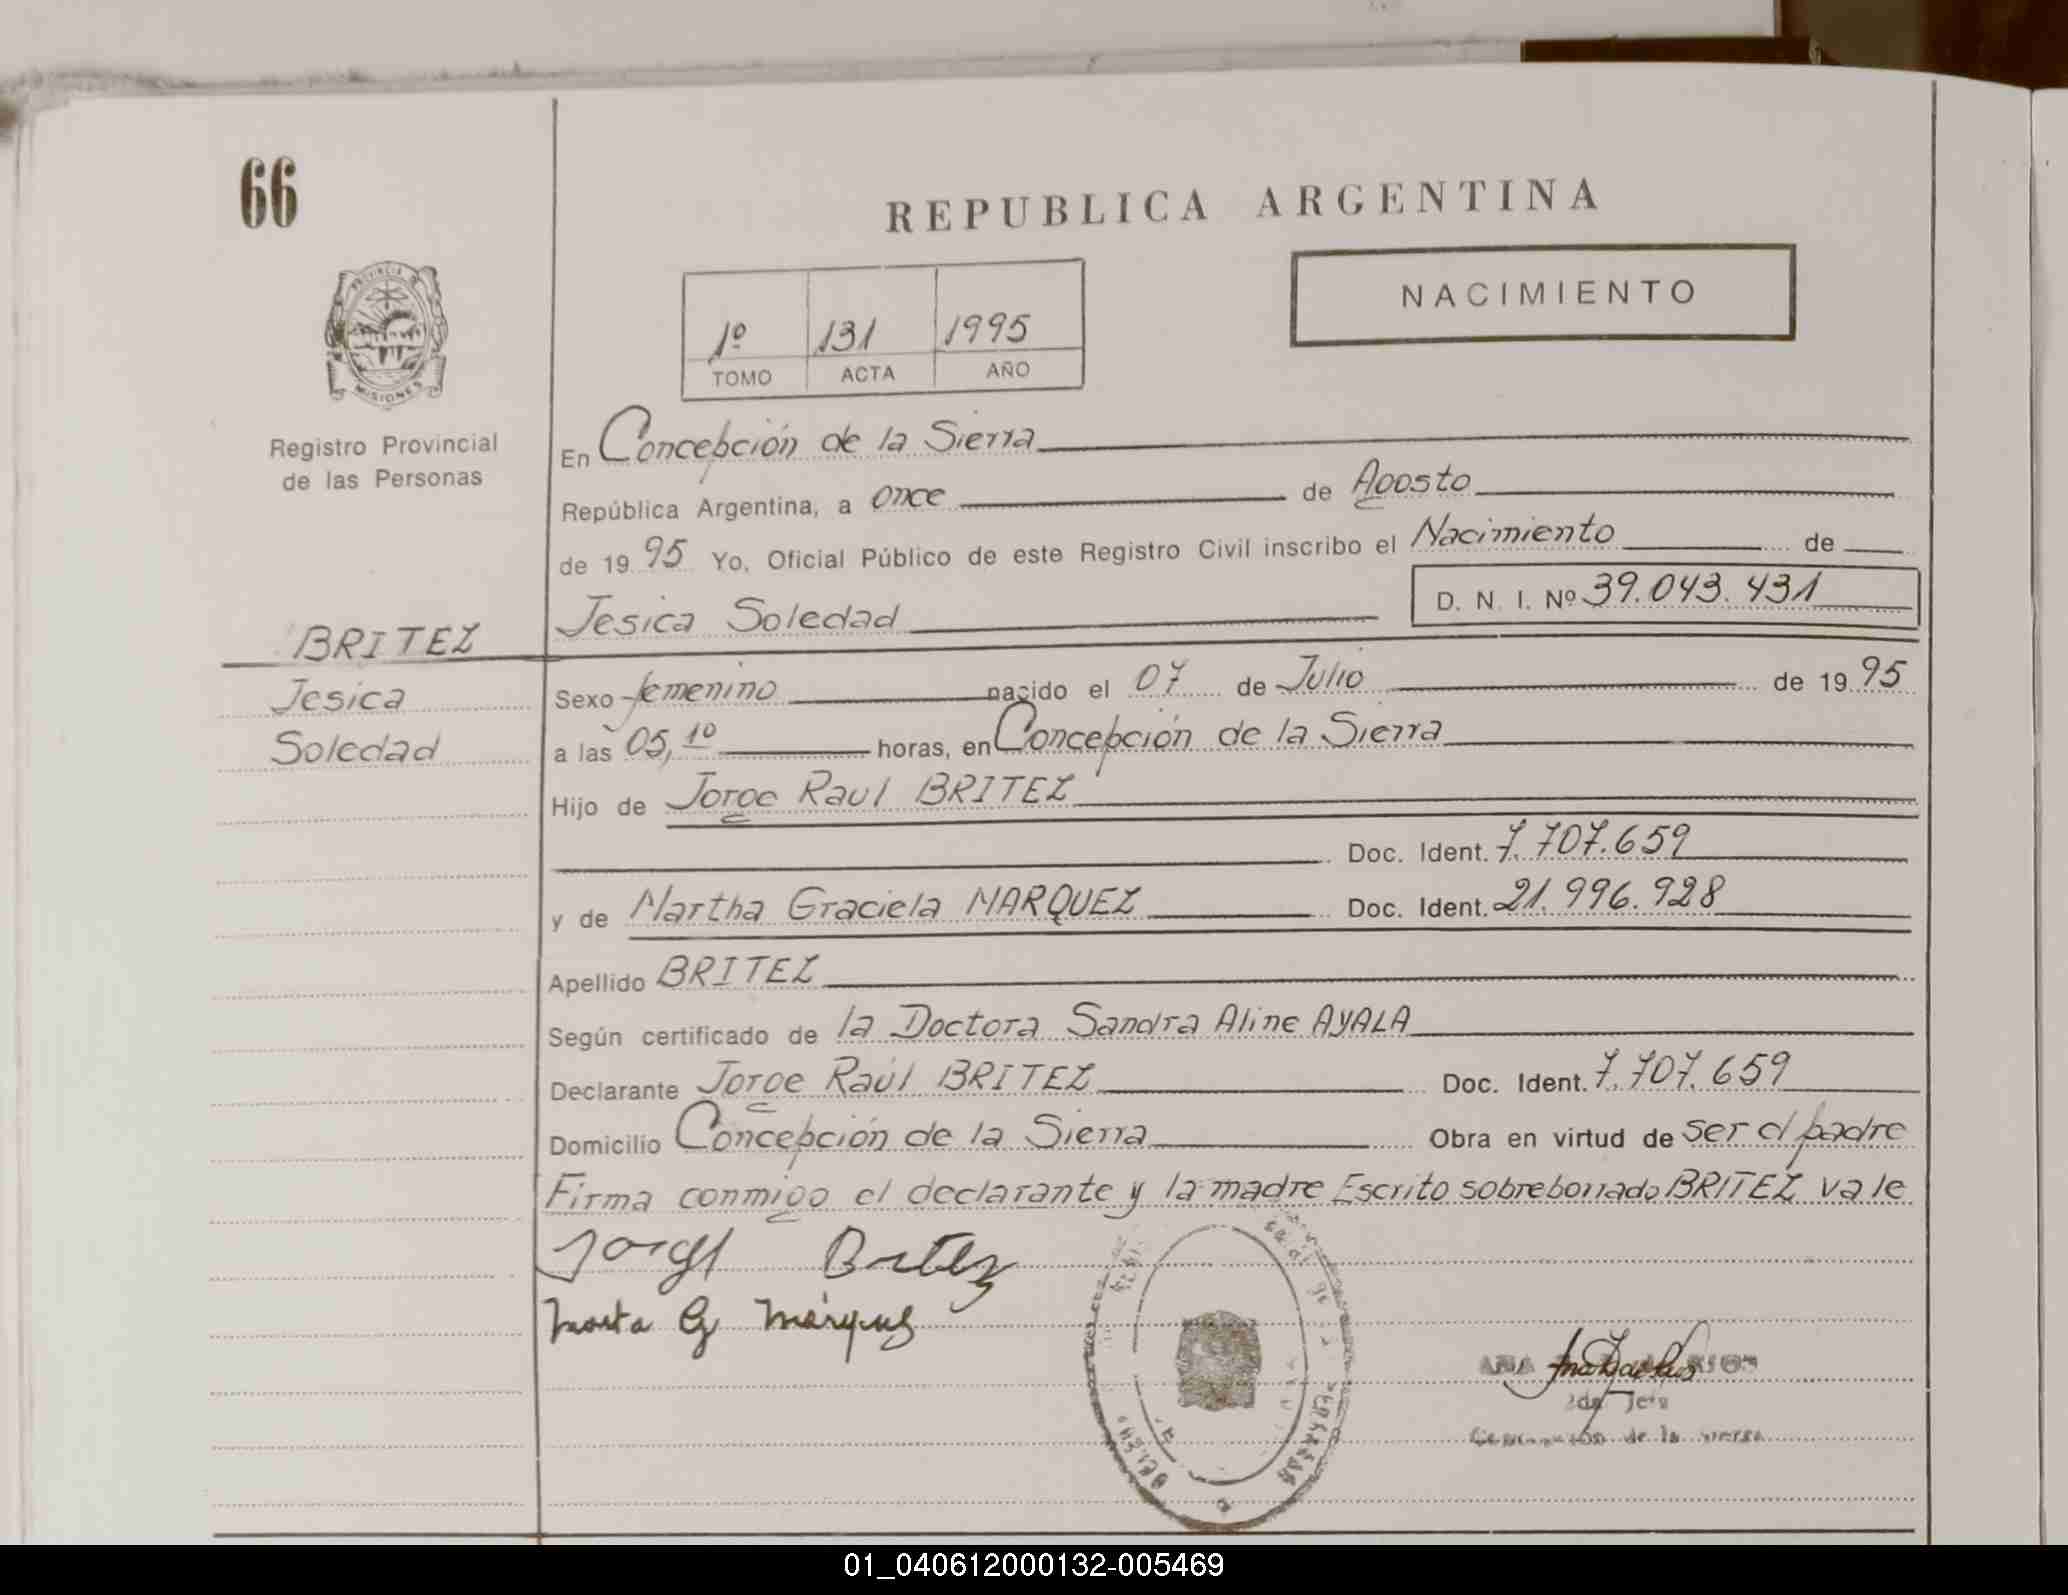 66
REPUBLICA ARGENTINA
NACIMIENTO
1º 131 1995
TOMO ACTA AÑO
PROVINCIA DE
MISIONES
Registro Provincial
de las Personas
En Concepción de la Sierra
República Argentina, a once de Agosto
de 1995 Yo, Oficial Público de este Registro Civil inscribo el Nacimiento de
Jesica Soledad D. N. I. Nº 39.043.431
BRITEZ
Jesica
Soledad
Sexo femenino nacido el 07 de Julio de 1995
a las 05,10 horas, en Concepción de la Sierra
Hijo de Jorge Raul BRITEZ
Doc. Ident. 7.707.659
y de Martha Graciela MARQUEZ Doc. Ident. 21.996.928
Apellido BRITEZ
Según certificado de la Doctora Sandra Aline AYALA
Declarante Jorge Raúl BRITEZ Doc. Ident. 7.707.659
Domicilio Concepción de la Sierra Obra en virtud de ser el padre
Firma conmigo el declarante y la madre Escrito sobreborrado BRITEZ vale
Jorge Britez
Marta G Márquez
de la Sierra
01_040612000132-005469